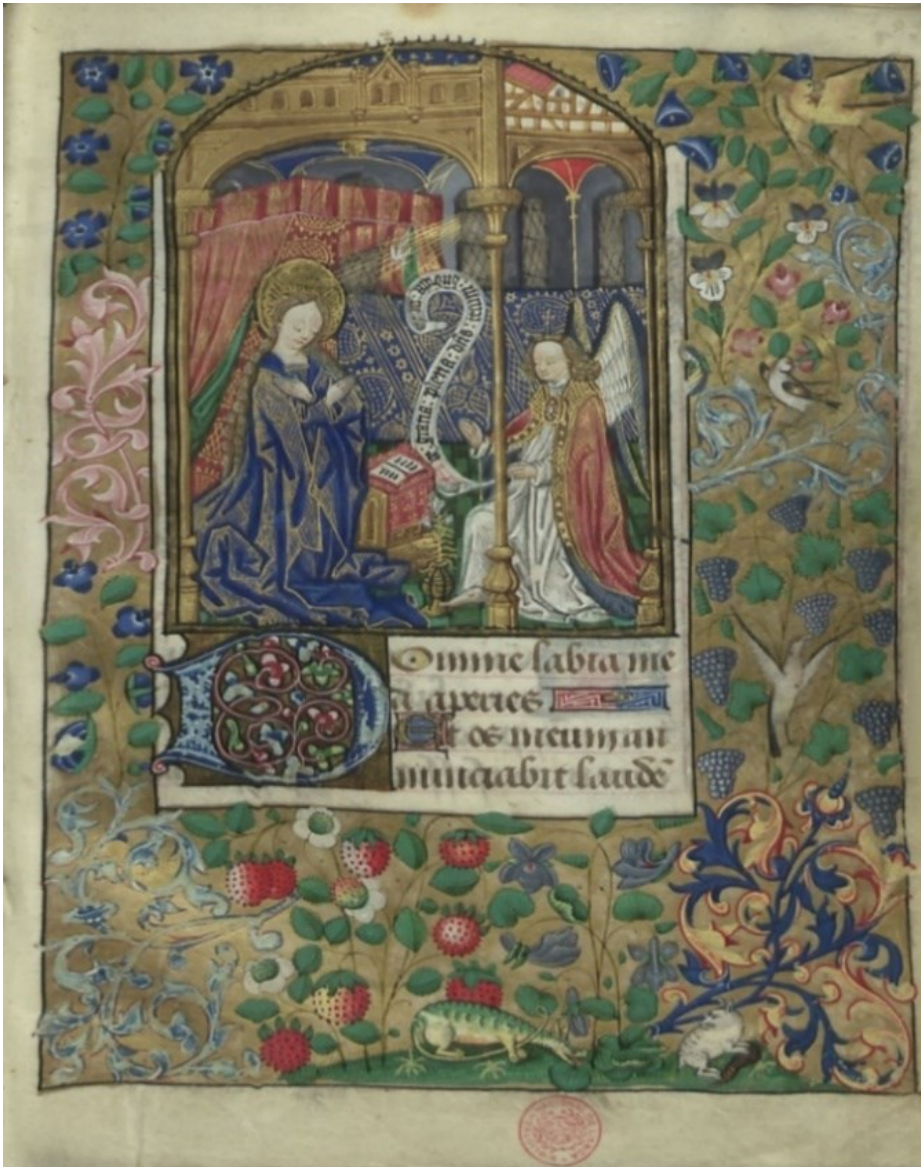 gracia · plena · dns ·
Domine labia me
a aperies
Et os meum an
nunciabit laudē